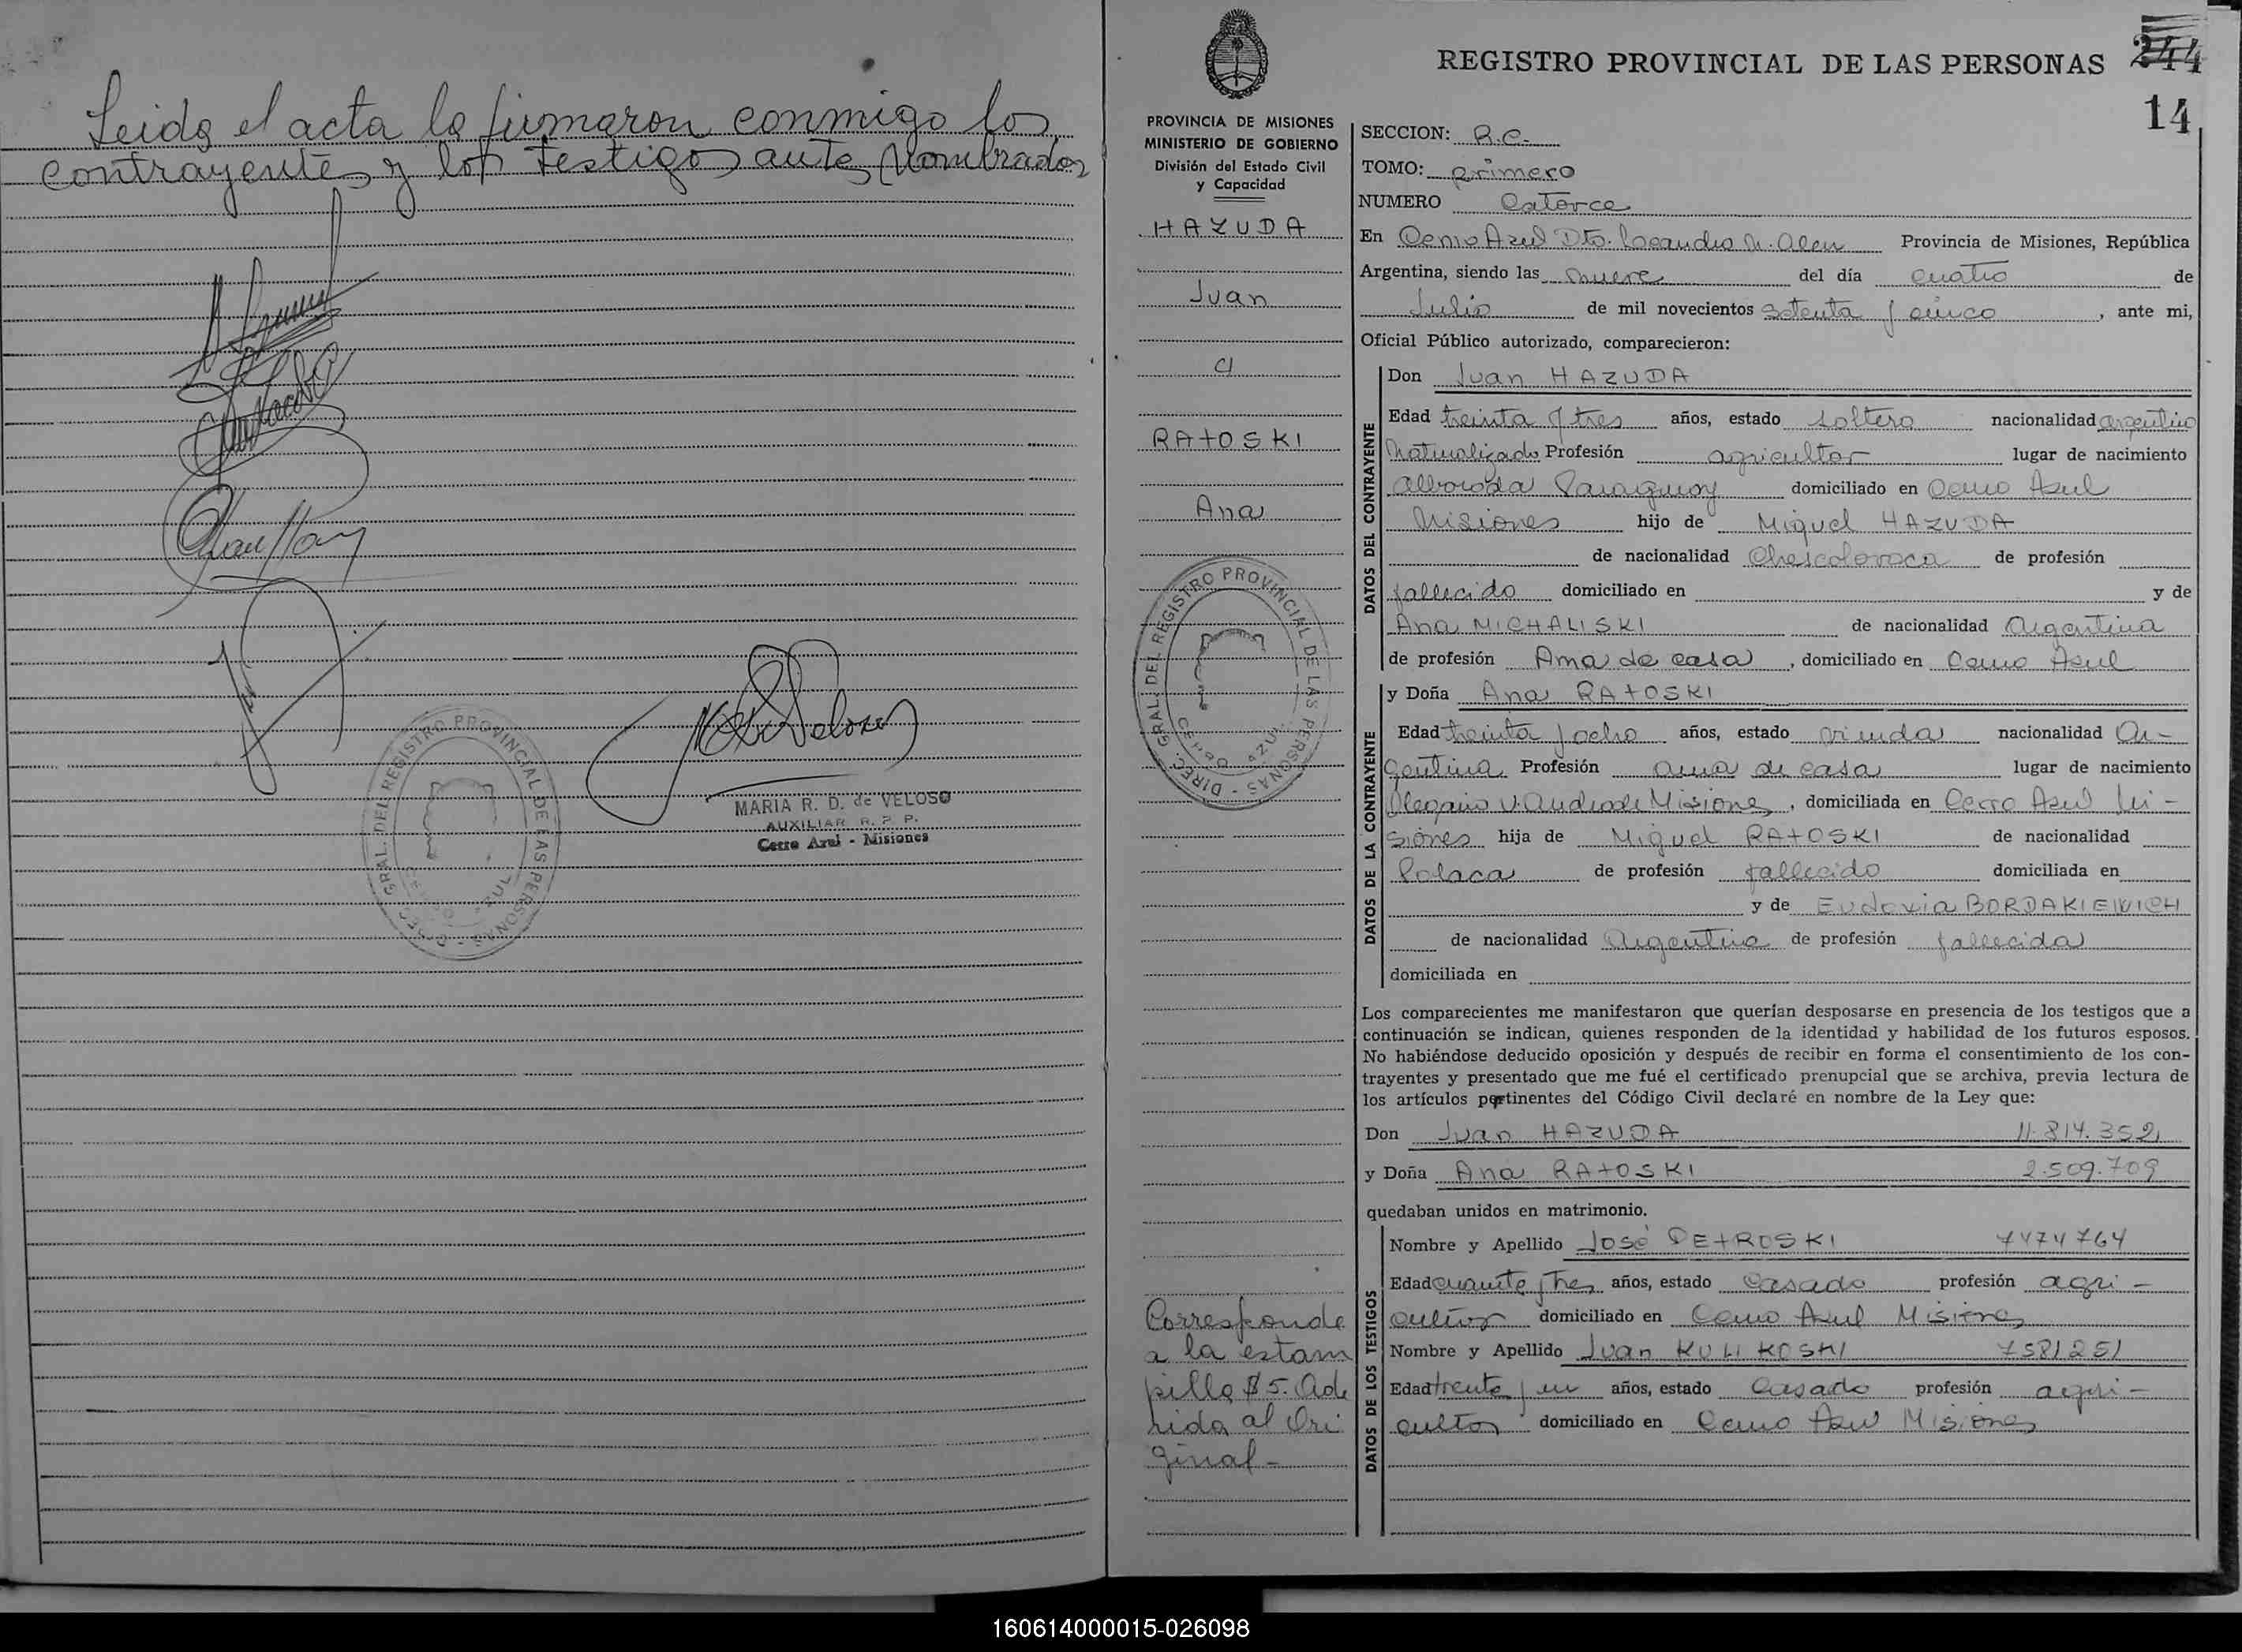 Leida el acta la firmaron conmigo los
contrayentes y los testigos antes nombrados
MARIA R. D. de VELOSO
AUXILIAR R. P. P.
Cerro Azul - Misiones
DIREC. GRAL. DEL REGISTRO PROVINCIAL DE LAS PERSONAS
CERRO AZUL
REGISTRO PROVINCIAL DE LAS PERSONAS 244
14
PROVINCIA DE MISIONES
MINISTERIO DE GOBIERNO
División del Estado Civil
y Capacidad
HAZUDA
Juan
c/
RATOSKI
Ana
DIREC. GRAL. DEL REGISTRO PROVINCIAL DE LAS PERSONAS
CERRO AZUL
Corresponde
a la estam
pilla $ 5. Ade
rida al Ori
ginal -
SECCION: R.C.
TOMO: primero
NUMERO Catorce
En Cerro Azul Dto. Leandro N. Alem Provincia de Misiones, República
Argentina, siendo las nueve del día cuatro de
Julio de mil novecientos setenta y cinco, ante mi,
Oficial Público autorizado, comparecieron:
DATOS DEL CONTRAYENTE
Don Juan HAZUDA
Edad treinta y tres años, estado soltero nacionalidad argentino
Naturalizado Profesión agricultor lugar de nacimiento
Alborada Paraguay domiciliado en Cerro Azul
Misiones hijo de Miguel HAZUDA
de nacionalidad Checoslovaca de profesión
fallecido domiciliado en y de
Ana MICHALISKI de nacionalidad Argentina
de profesión Ama de casa, domiciliado en Cerro Azul
DATOS DE LA CONTRAYENTE
y Doña Ana RATOSKI
Edad treinta y ocho años, estado viuda nacionalidad Ar-
gentina Profesión ama de casa lugar de nacimiento
Olegario V. Andrade Misiones, domiciliada en Cerro Azul Mi-
siones hija de Miguel RATOSKI de nacionalidad
Polaca de profesión fallecido domiciliada en
y de Eudoxia BORDAKIEWICH
de nacionalidad Argentina de profesión fallecida
domiciliada en
Los comparecientes me manifestaron que querían desposarse en presencia de los testigos que a
continuación se indican, quienes responden de la identidad y habilidad de los futuros esposos.
No habiéndose deducido oposición y después de recibir en forma el consentimiento de los con-
trayentes y presentado que me fué el certificado prenupcial que se archiva, previa lectura de
los artículos pertinentes del Código Civil declaré en nombre de la Ley que:
Don Juan HAZUDA 11.814.352
y Doña Ana RATOSKI 2.509.709
quedaban unidos en matrimonio.
DATOS DE LOS TESTIGOS
Nombre y Apellido José PETROSKI 7474764
Edad cuarenta y tres años, estado Casado profesión agri-
cultor domiciliado en Cerro Azul Misiones
Nombre y Apellido Juan KULIKOSKI 7581251
Edad treinta y un años, estado Casado profesión agri-
cultor domiciliado en Cerro Azul Misiones
160614000015-026098